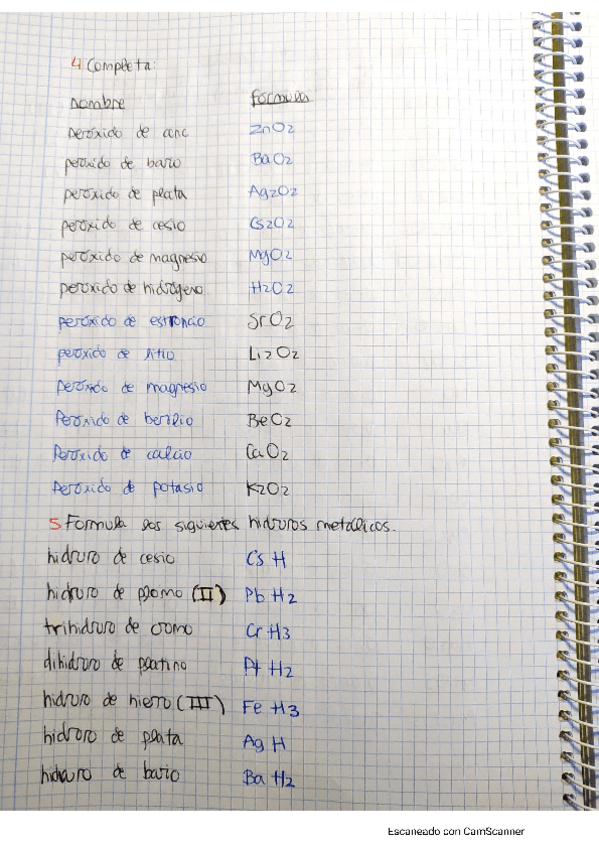 4 Completa:
nombre Formula
peróxido de cinc ZnO2
peróxido de bario BaO2
peróxido de plata Ag2O2
peróxido de cesio Cs2O2
peróxido de magnesio MgO2
peróxido de hidrógeno H2O2
peróxido de estroncio SrO2
peróxido de litio Li2O2
peróxido de magnesio MgO2
Peróxido de berilio BeO2
Peróxido de calcio CaO2
Peróxido de potasio K2O2
5 Formula los siguientes hidruros metálicos.
hidruro de cesio CsH
hidruro de plomo (II) PbH2
trihidruro de cromo CrH3
dihidruro de platino PtH2
hidruro de hierro (III) FeH3
hidruro de plata AgH
hidruro de bario BaH2
Escaneado con CamScanner